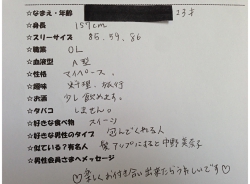 ☆なまえ・年齢 23才
☆身長 157cm
☆スリーサイズ 85.59.86
☆職業 OL
☆血液型 A型
☆性格 マイペース。
☆趣味 料理・旅行
☆お酒 少し飲めます。
☆タバコ しません。
☆好きな食べ物 スイーツ
☆好きな男性のタイプ 包んでくれる人
☆似ている?有名人 髪アップにすると中野美奈子
☆男性会員さまへメッセージ
♡楽しくお付き合い出来たらうれしいです♡